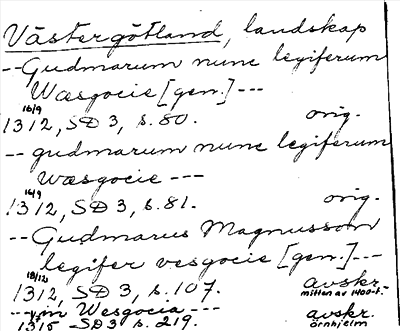 Västergötland, landskap
-- Gudmarum nunc legiferum
Wæsgocie [gen.] ---
16/9
1312, SD 3, s. 80. orig.
-- gudmarum nunc legiferum
wæsgocie ---
16/9
1312, SD 3, s. 81. orig.
-- Gudmarus Magnusson
legifer vesgocie [gen.] ---
18/12
1312, SD 3, s. 107. avskr.
mitten av 1400-t.
--- in Wesgocia ---
1315 SD 3, s. 219. avskr.
örnhielm